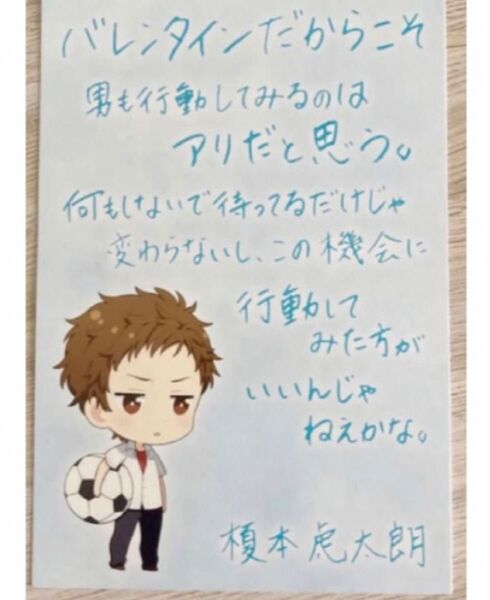 バレンタインだからこそ
男も行動してみるのは
アリだと思う。
何もしないで待ってるだけじゃ
変わらないし、この機会に
行動して
みた方が
いいんじゃ
ねえかな。
榎本虎太朗